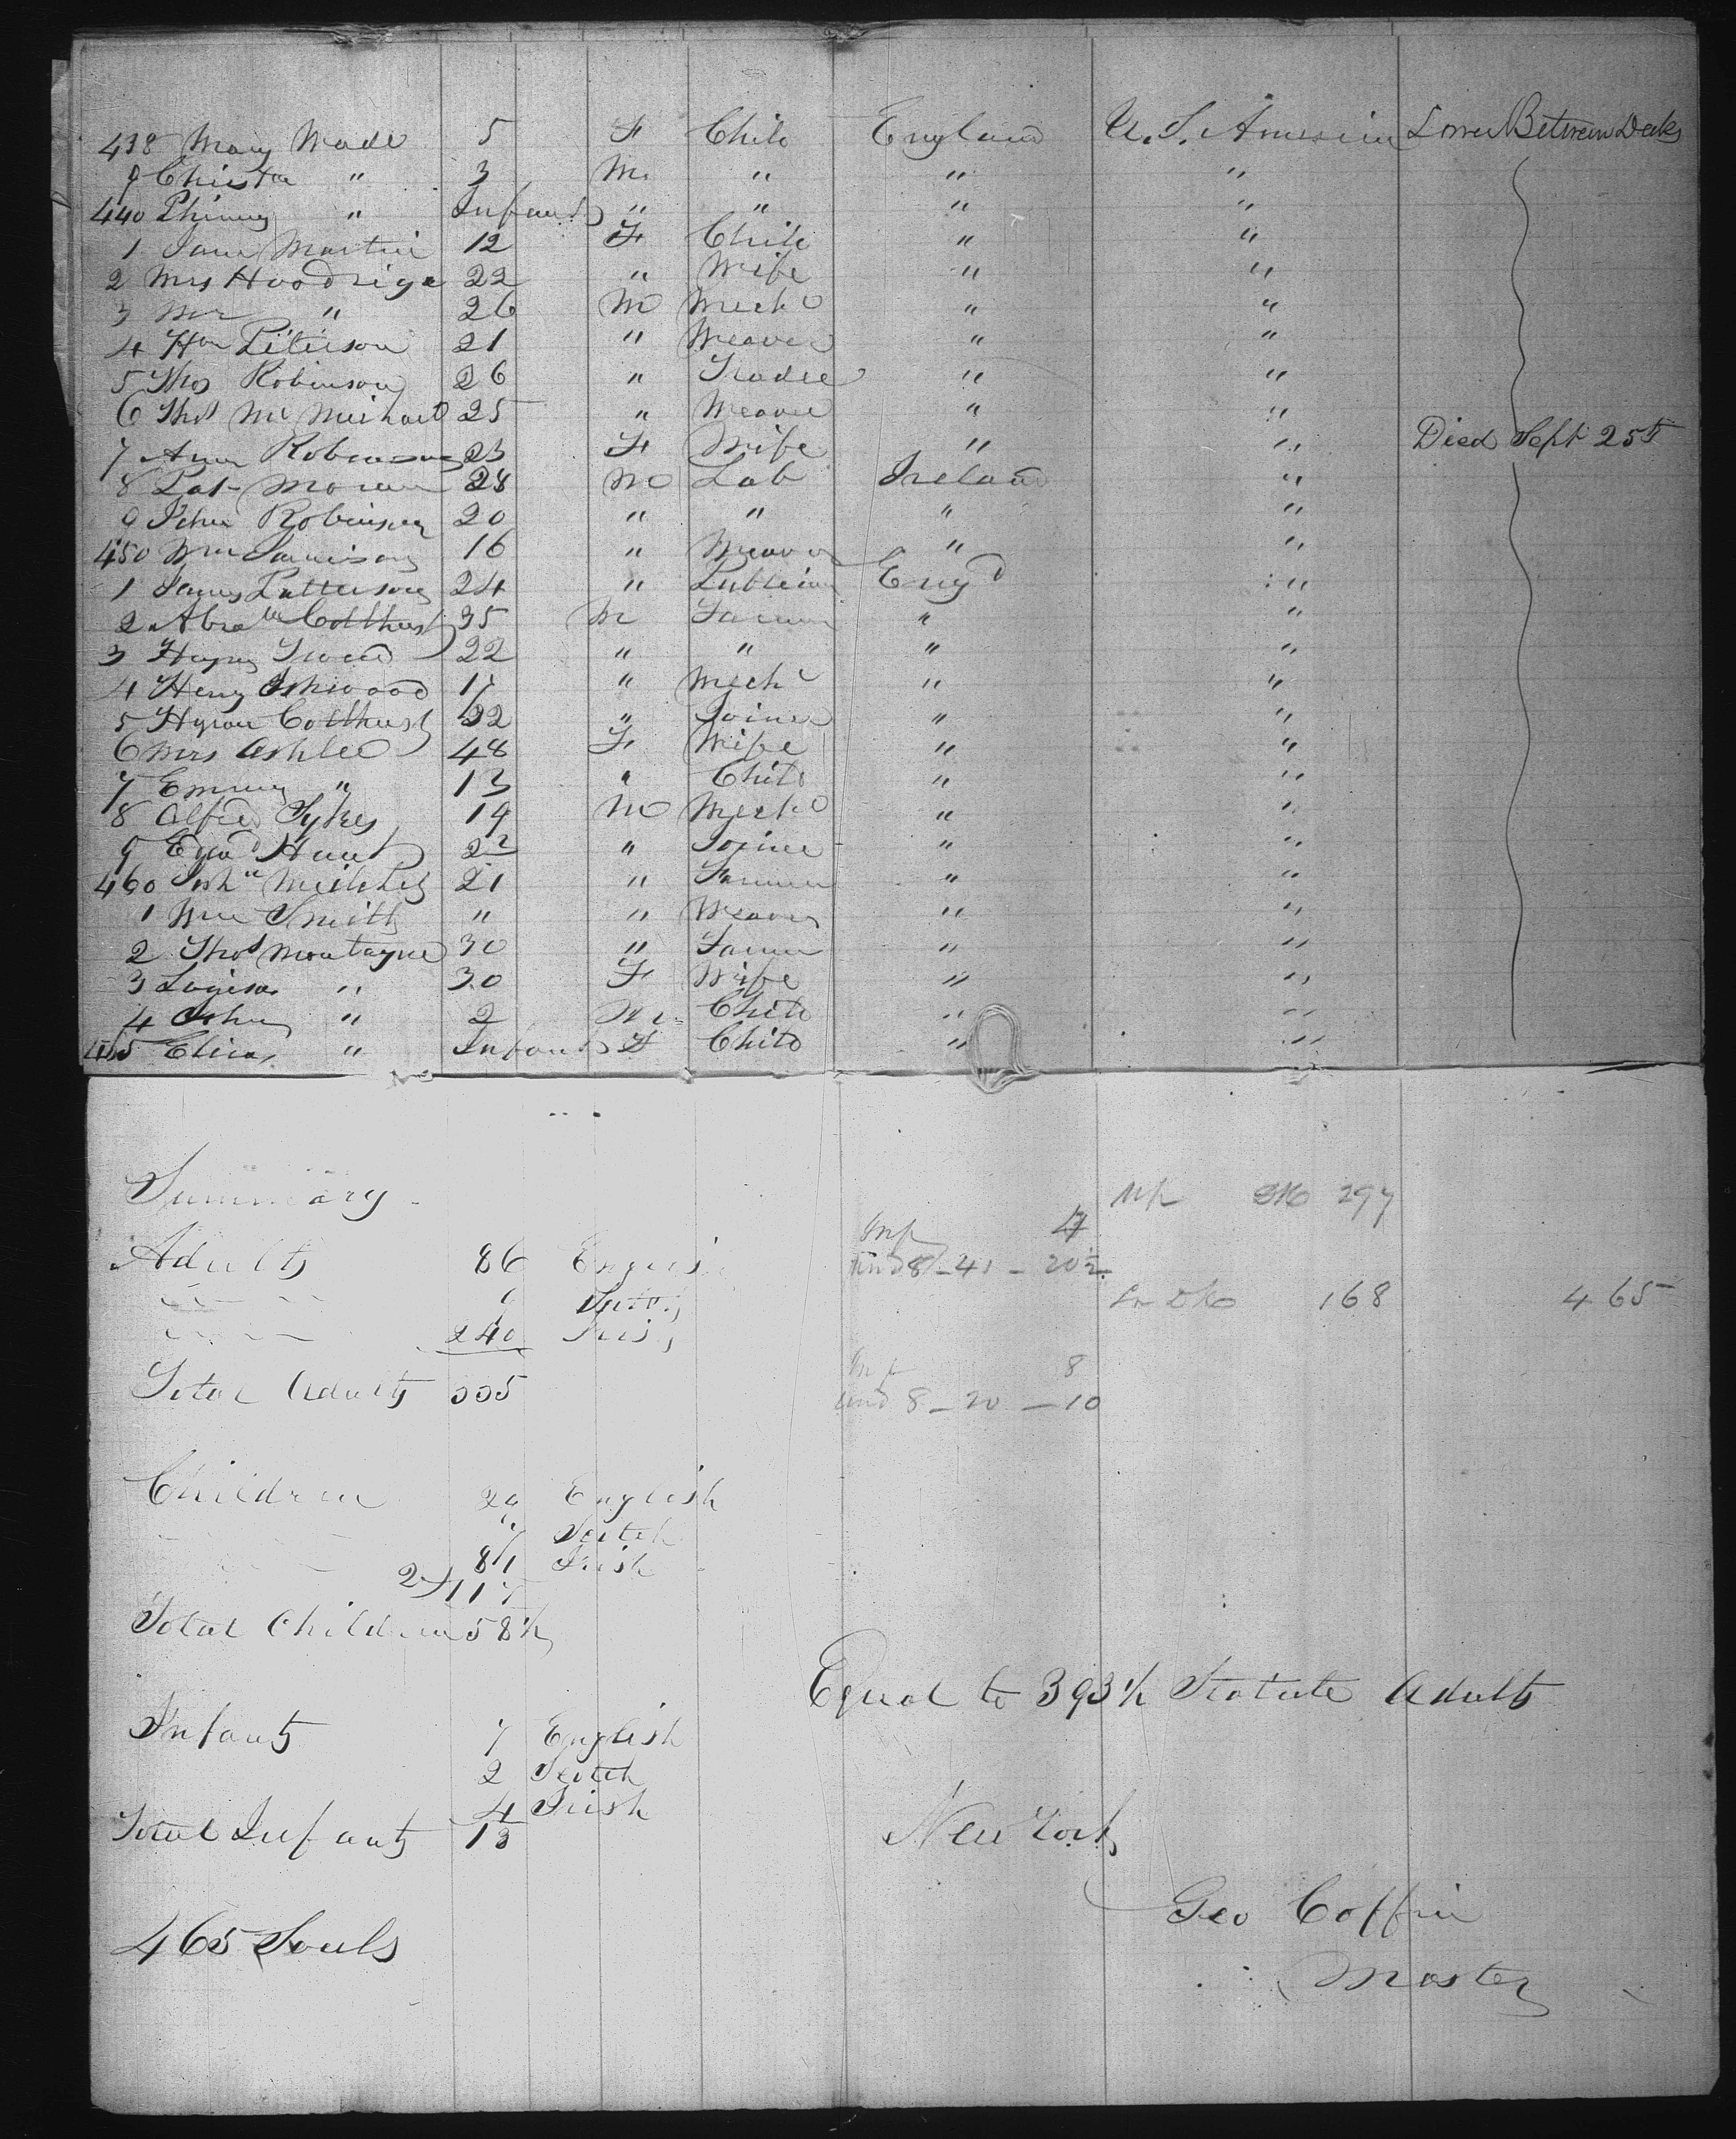 438 Mary Wade 5 F Child England U.S. America Lower Between Decks
9 Christr " 3 M. " " "
440 Phinny " Infant " " " "
1 Jane Martin 12 F Child " "
2 Mrs Woodrige 22 " Wife " "
3 Mr " 26 M Mechc " "
4 Hm Peterson 21 " Weaver " "
5 Thos Robinson 26 " Trader " "
6 Thos Mc Michael 25 " Weaver " "
7 Ann Robinson 23 F Wife " " Died Sept 25th
8 Pat Moran 28 M Lab Ireland "
9 John Robinson 20 " " " "
450 Wm Jamison 16 " Weaver " "
1 James Patterson 24 " Publican Engd "
2 Abram Colthust 35 M Farmer " "
3 22 " " " "
4 Henry Ishwood 17 " Mechc " "
5 Hyram Colthust 22 " Joiner " "
6 Mrs Ashlee 48 F Wife " "
7 Emmy " 13 " Child " "
8 Alfred Sykes 19 M Mechc " "
9 Edwd Hunt 22 " Joiner " "
460 21 " Farmer " "
1 Wm Smith " " Weaver " "
2 Thos Montayne 30 " Farmer " "
3 Louisa " 30 F Wife " "
4 John " 2 M Child " "
465 Eliza " Infant F Child " "
Summary
Up Dks 297
Inf 4
Adults 86 English
und 8 - 41 - 20½
" 9 Scotch
Lr Dks 168 465
" 240 Irish
Inf 8
Total Adults 335
und 8 - 20 - 10
Children 29 English
" 7 Scotch
" 81 Irish
2)117
Total Children 58½
Equal to 393½ Statute Adults
Infants 7 English
2 Scotch
4 Irish
Total Infants 13
New York
Geo Coffin
465 Souls
Master